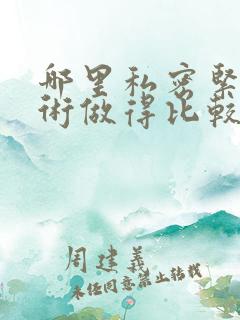 哪里私密紧
术做得比较
周建義
未经同意禁止转载